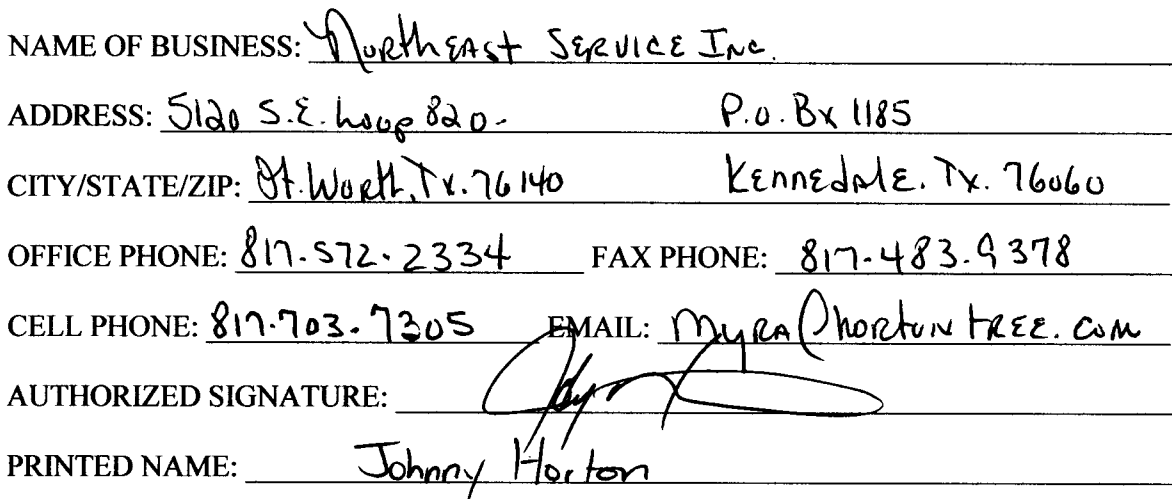 NAME OF BUSINESS: Northeast Service Inc.
ADDRESS: 5120 S.E. Loop 820. P.O. Bx 1185
CITY/STATE/ZIP: Ft. Worth, Tx. 76140 Kennedale. Tx. 76060
OFFICE PHONE: 817.572.2334 FAX PHONE: 817-483.9378
CELL PHONE: 817.703.7305 EMAIL: Myra@hortontree.com
AUTHORIZED SIGNATURE:
PRINTED NAME: Johnny Horton